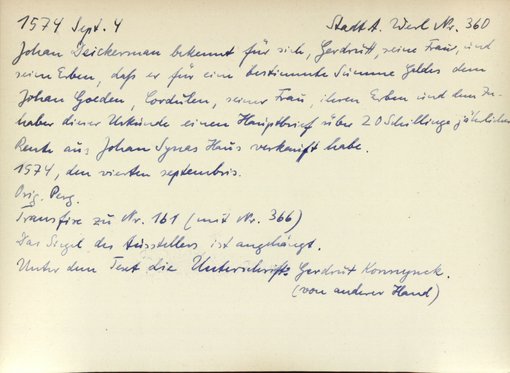 1574 Sept. 4 Stadt A. Werl Nr. 360
Johan Deickerman bekennt für sich, Gerdrutt, seine Frau, und
seine Erben, daß er für eine bestimmte Summe Geldes dem
Johan Goeden, Cordulen, seiner Frau, ihren Erben und dem In-
haber dieser Urkunde einen Hauptbrief über 20 Schillinge jährlicher
Rente aus Johan Synas Haus verkauft habe.
1574, den vierten septembris.
Orig. Perg.
Transfixe zu Nr. 161 (mit Nr. 366)
Das Siegel des Ausstellers ist angehängt.
Unter dem Text die Unterschrift: Gerdrut Konnynck.
(von anderer Hand)